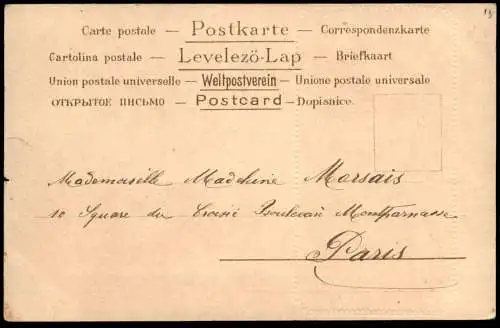 Carte postale — Postkarte — Correspondenzkarte
Cartolina postale — Levelezö-Lap — Briefkaart
Union postale universelle — Weltpostverein — Unione postale universale
ОТКРЫТОЕ ПИСЬМО — Postcard — Dopisnice.
Mademoiselle Madeleine Morsais
10 Square du Croisic Boulevard Montparnasse
Paris